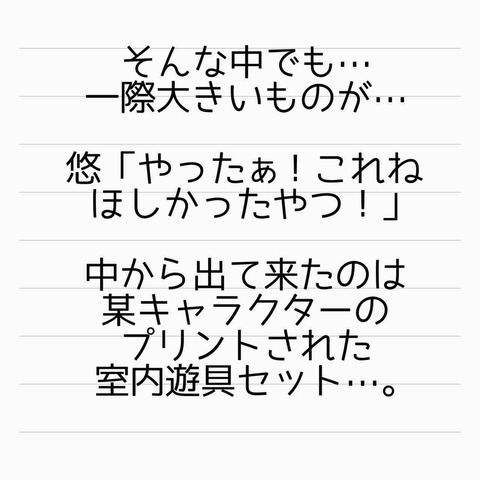 そんな中でも…
一際大きいものが…
悠「やったぁ！これね
ほしかったやつ！」
中から出て来たのは
某キャラクターの
プリントされた
室内遊具セット…。